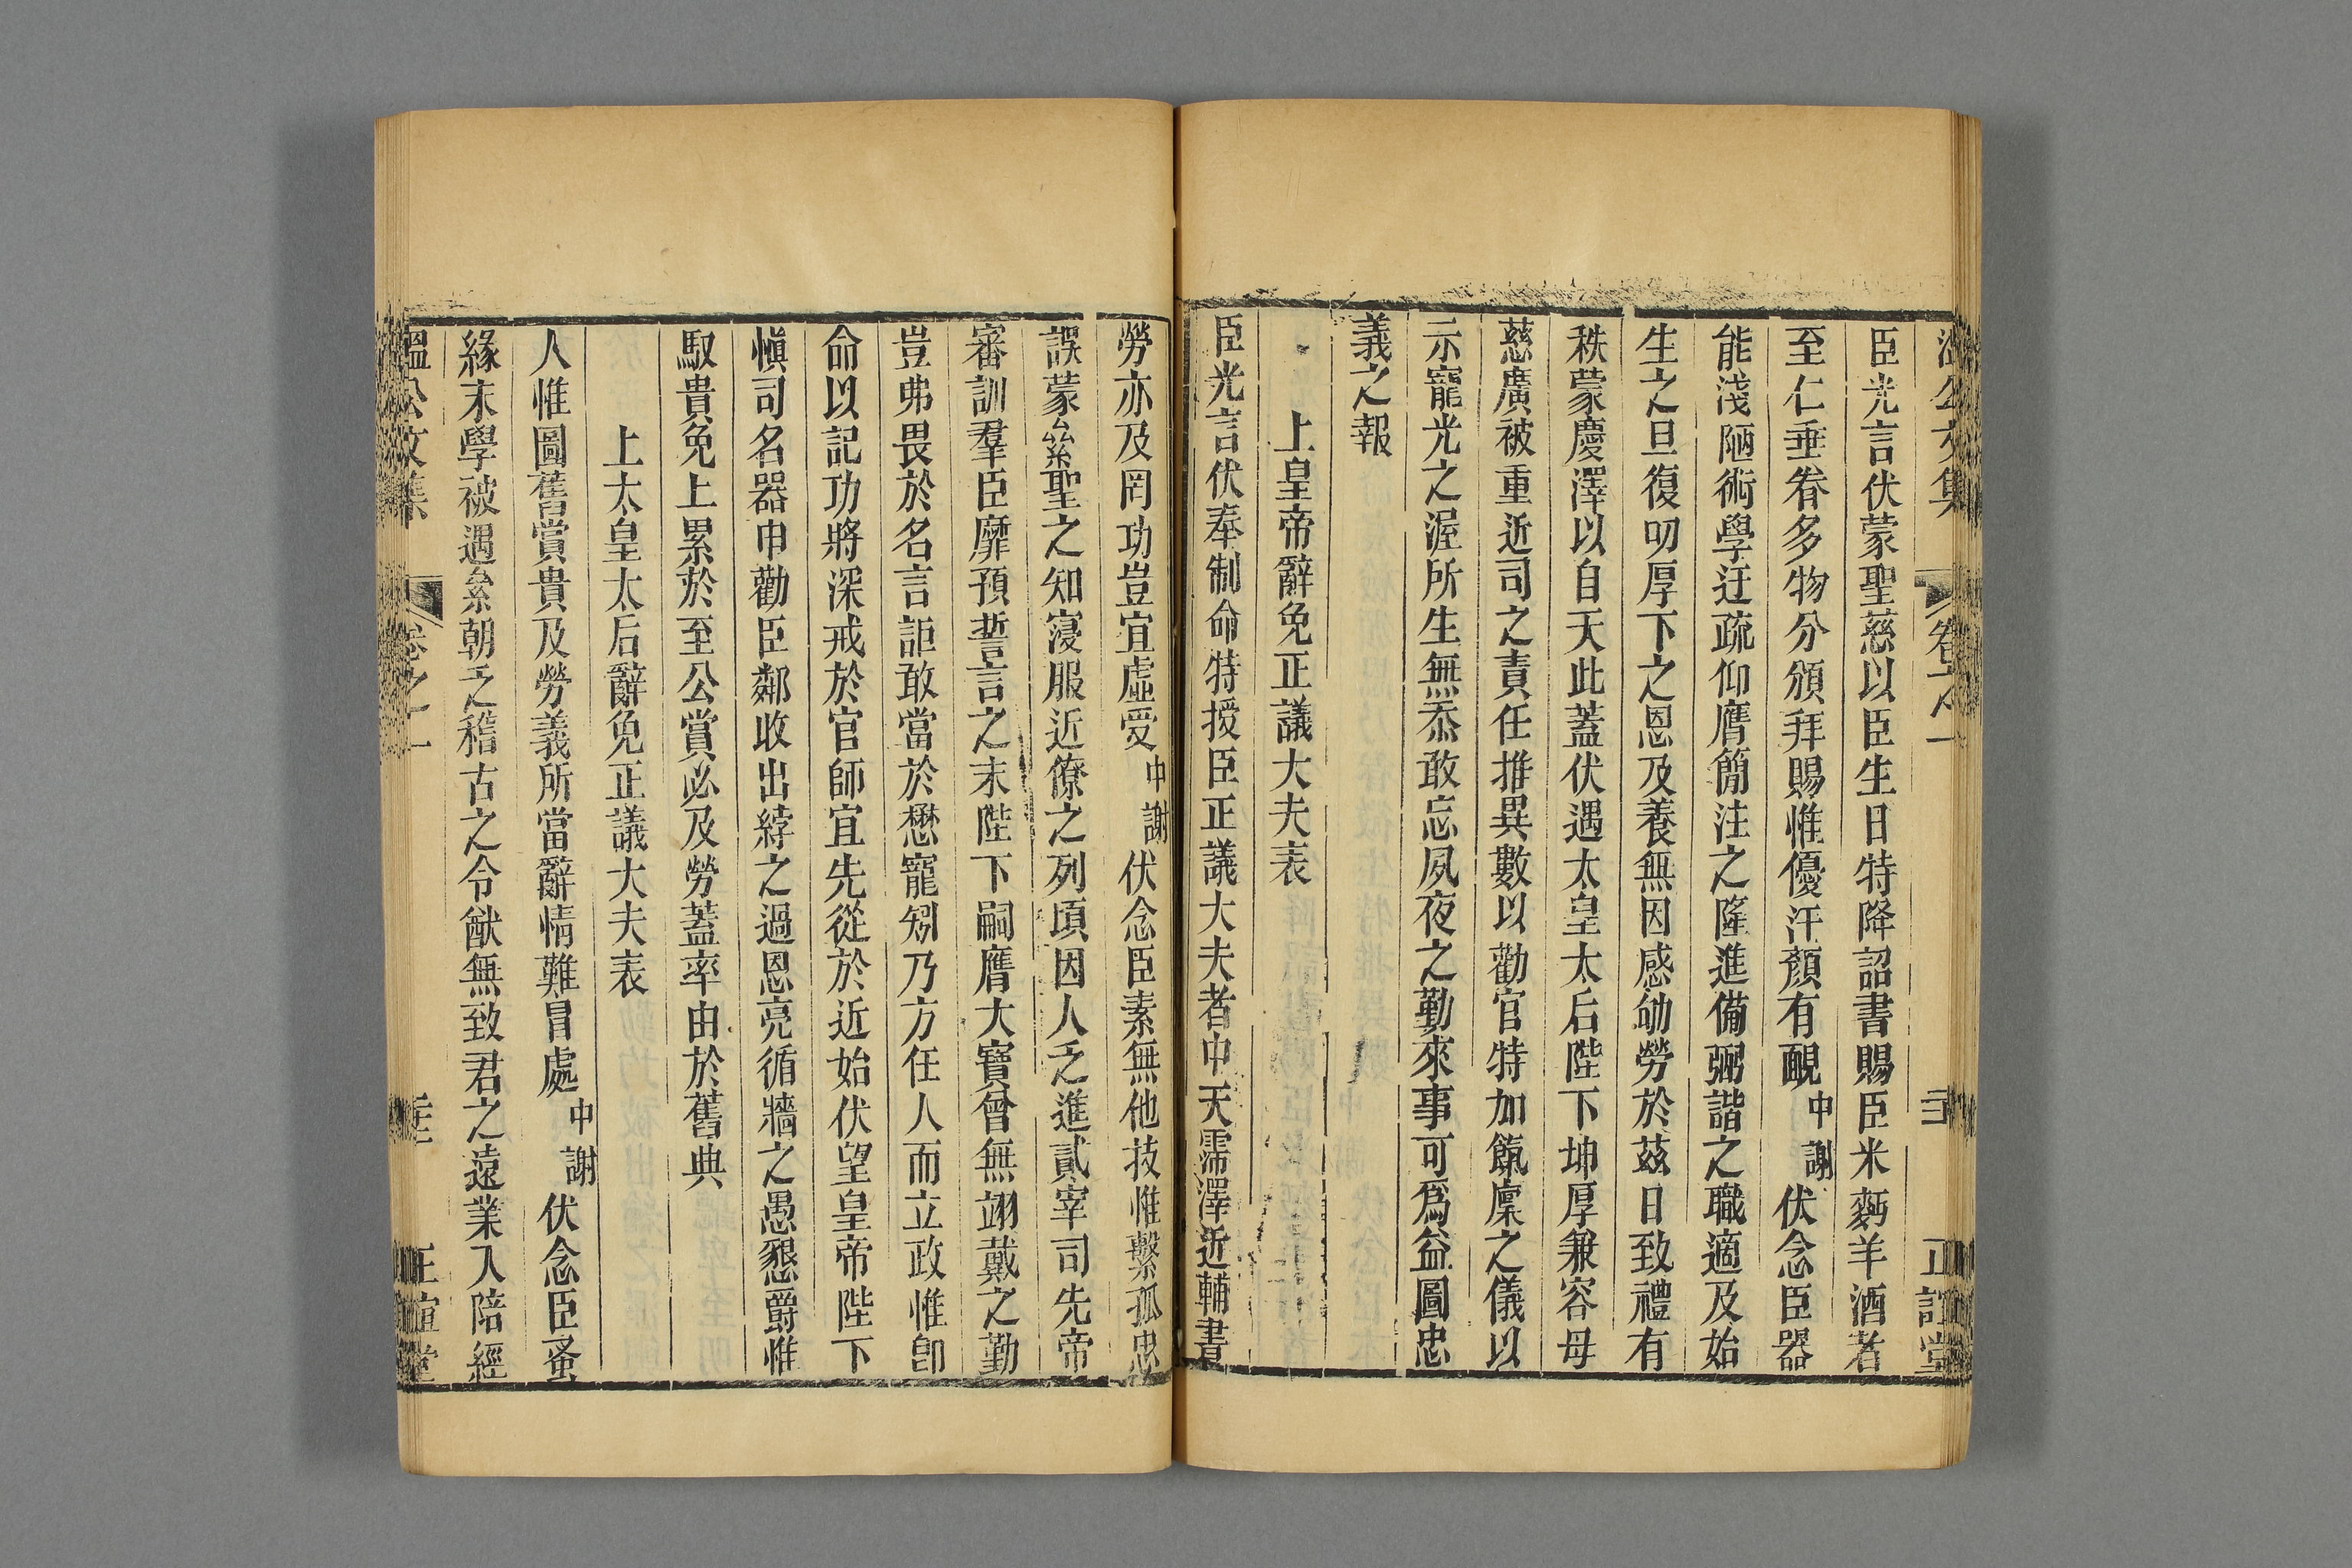 溫公文集 卷之一 三十 正誼堂
臣光言伏蒙聖慈以臣生日特降詔書賜臣米麪羊酒者
至仁垂眷多物分頒拜賜惟優汗顏有靦中謝伏念臣器
能淺陋術學迂疏仰膺簡注之隆進備弼諧之職適及始
生之旦復叨厚下之恩及養無因感劬勞於茲日致禮有
秩蒙慶澤以自天此蓋伏遇太皇太后陛下坤厚兼容母
慈廣被重近司之責任推異數以勸官特加餼廩之儀以
示寵光之渥所生無忝敢忘夙夜之勤來事可爲益圖忠
義之報
上皇帝辭免正議大夫表
臣光言伏奉制命特授臣正議大夫者中天霈澤近輔書
勞亦及罔功豈宜虛受中謝伏念臣素無他技惟繫孤忠
誤蒙絫聖之知寖服近僚之列頃因人乏進貳宰司先帝
審訓羣臣靡預誓言之末陛下嗣膺大寶曾無翊戴之勤
豈弗畏於名言詎敢當於懋寵矧乃方任人而立政惟卽
命以記功將深戒於官師宜先從於近始伏望皇帝陛下
愼司名器申勸臣鄰收出綍之過恩亮循牆之愚懇爵惟
馭貴免上累於至公賞必及勞蓋率由於舊典
上太皇太后辭免正議大夫表
人惟圖舊賞貴及勞義所當辭情難冒處中謝伏念臣蚤
緣末學被遇絫朝乏稽古之令猷無致君之遠業入陪經
溫公文集 卷之一 正誼堂